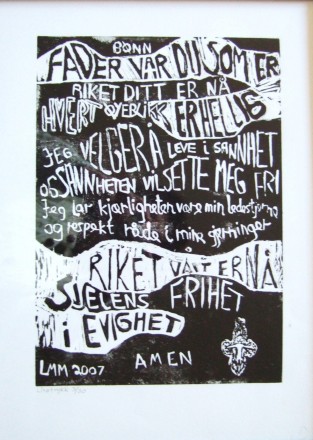 BØNN
FADER VÅR DU SOM ER
RIKET DITT ER NÅ
HVERT ØYEBLIKK ER HELLIG
JEG VELGER Å LEVE i SANNHET
OG SANNHETEN VIL SETTE MEG FRI
Jeg lar kjærligheten være min ledestjerne
og respekt råde i mine gjerninger
RIKET VÅRT ER NÅ
SJELENS FRIHET
i EVIGHET
AMEN
LMM 2007